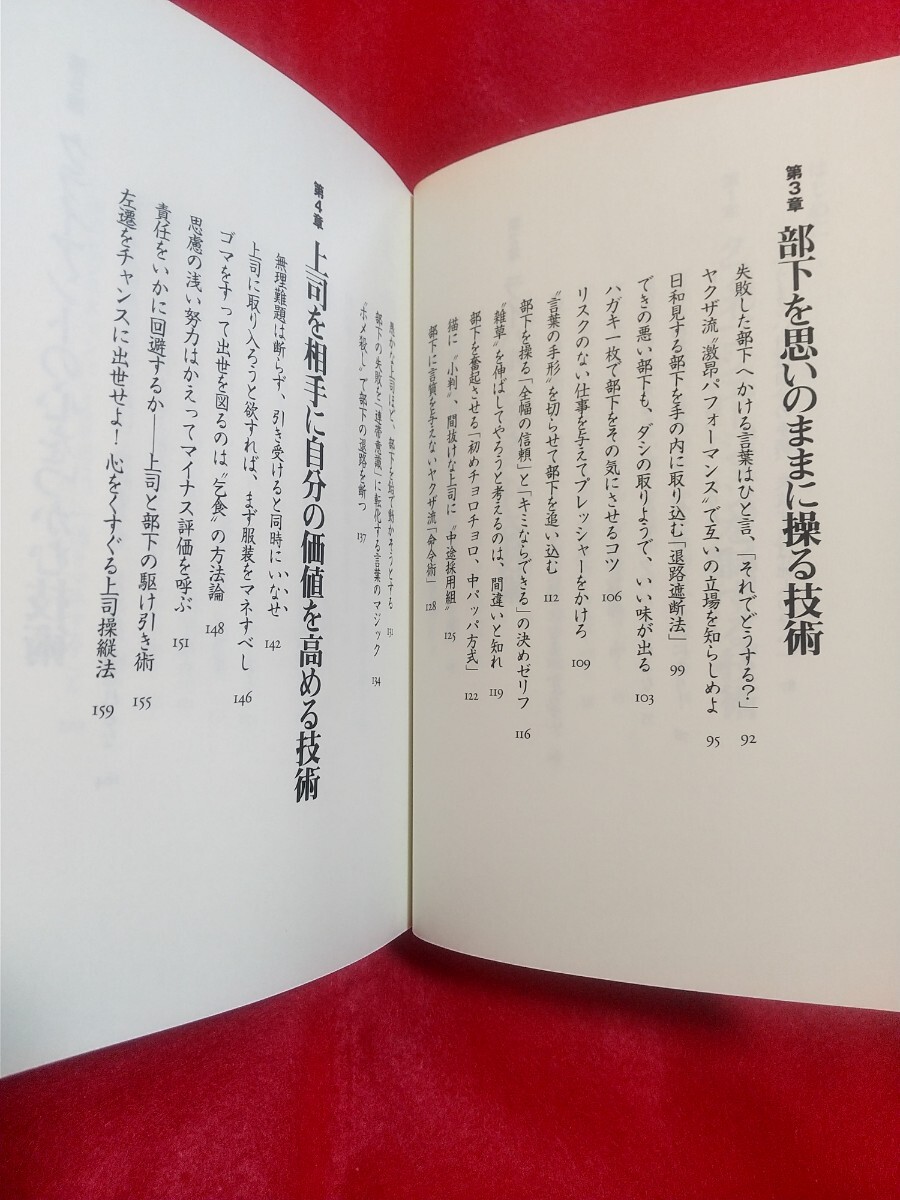 第3章 部下を思いのままに操る技術
失敗した部下へかける言葉はひと言、「それでどうする？」 92
ヤクザ流〝激昂パフォーマンス〟で互いの立場を知らしめよ 95
日和見する部下を手の内に取り込む「退路遮断法」 99
できの悪い部下も、ダシの取りようで、いい味が出る 103
ハガキ一枚で部下をその気にさせるコツ 106
リスクのない仕事を与えてプレッシャーをかけろ 109
〝言葉の手形〟を切らせて部下を追い込む 112
部下を操る「全幅の信頼」と「キミならできる」の決めゼリフ 116
〝雑草〟を伸ばしてやろうと考えるのは、間違いと知れ 119
部下を奮起させる「初めチョロチョロ、中パッパ方式」 122
猫に〝小判〟、間抜けな上司に〝中途採用組〟 125
部下に言質を与えないヤクザ流「命令術」 128
愚かな上司ほど、部下を恐怖で動かそうとする 131
部下の失敗を「連帯意識」に転化する言葉のマジック 134
〝ホメ殺し〟で部下の退路を断つ 137
第4章 上司を相手に自分の価値を高める技術
無理難題は断らず、引き受けると同時にいなせ 142
上司に取り入ろうと欲すれば、まず服装をマネすべし 146
ゴマをすって出世を図るのは〝乞食〟の方法論 148
思慮の浅い努力はかえってマイナス評価を呼ぶ 151
責任をいかに回避するか――上司と部下の駆け引き術 155
左遷をチャンスに出世せよ！心をくすぐる上司操縦法 159